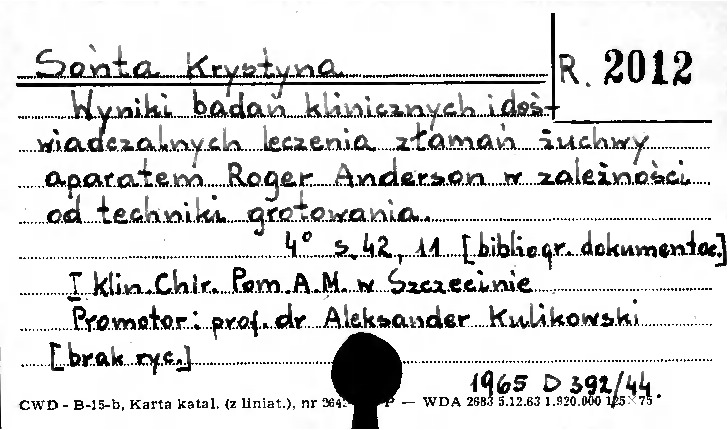 Sońta Krystyna
R. 2012
Wyniki badań klinicznych i doś-
wiadczalnych leczenia złamań żuchwy
aparatem Roger Anderson w zależności
od techniki grotowania.
4° s. 42, 11 [bibliogr. dokumentac.]
I Klin. Chir. Pom. A.M. w Szczecinie
Promotor: prof. dr Aleksander Kulikowski
[brak ryc.]
1965 D 392/44.
CWD - B-15-b, Karta katal. (z liniat.), nr P — WDA 2683 5.12.63 1.920.000 125×75